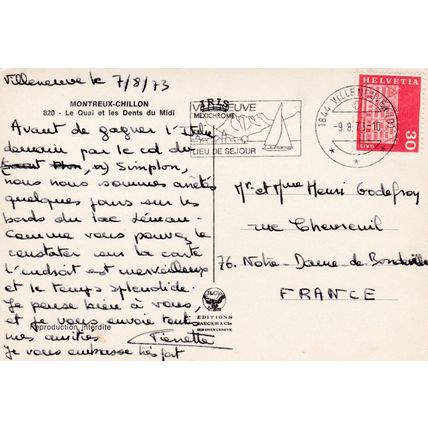 Villeneuve le 7/8/73
MONTREUX-CHILLON
820 - Le Quai et les Dents du Midi
Avant de gagner l'Italie
demain par le col du
Simplon,
nous nous sommes arrêtés
quelques jours sur les
bords du lac Léman.
Comme vous pouvez le
constater sur la carte
l'endroit est merveilleux
et le temps splendide.
Je pense bien à vous
et je vous envoie toutes
mes amitiés
Pierrette
Je vous embrasse très fort
Reproduction interdite
IRIS
MEXICHROME
VILLENEUVE
LIEU DE SEJOUR
1844 VILLENEUVE
-9.8.73-10
HELVETIA
30
EDITIONS
JAEGER & Cie
Mr et Mme Henri Godefroy
rue Chevreuil
76. Notre-Dame-de Bondeville
FRANCE